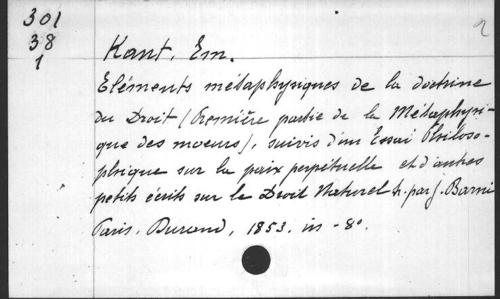 301
38
1
2
Kant, Em.
Eléments métaphysiques de la doctrine
du Droit (Première partie de la Métaphysi-
que des moeurs), suivis d'un Essai Philoso-
phique sur la paix perpétuelle et d'autres
petits écrits sur le Droit Naturel tr. par J. Barni
Paris. Durand, 1853. in-8º.